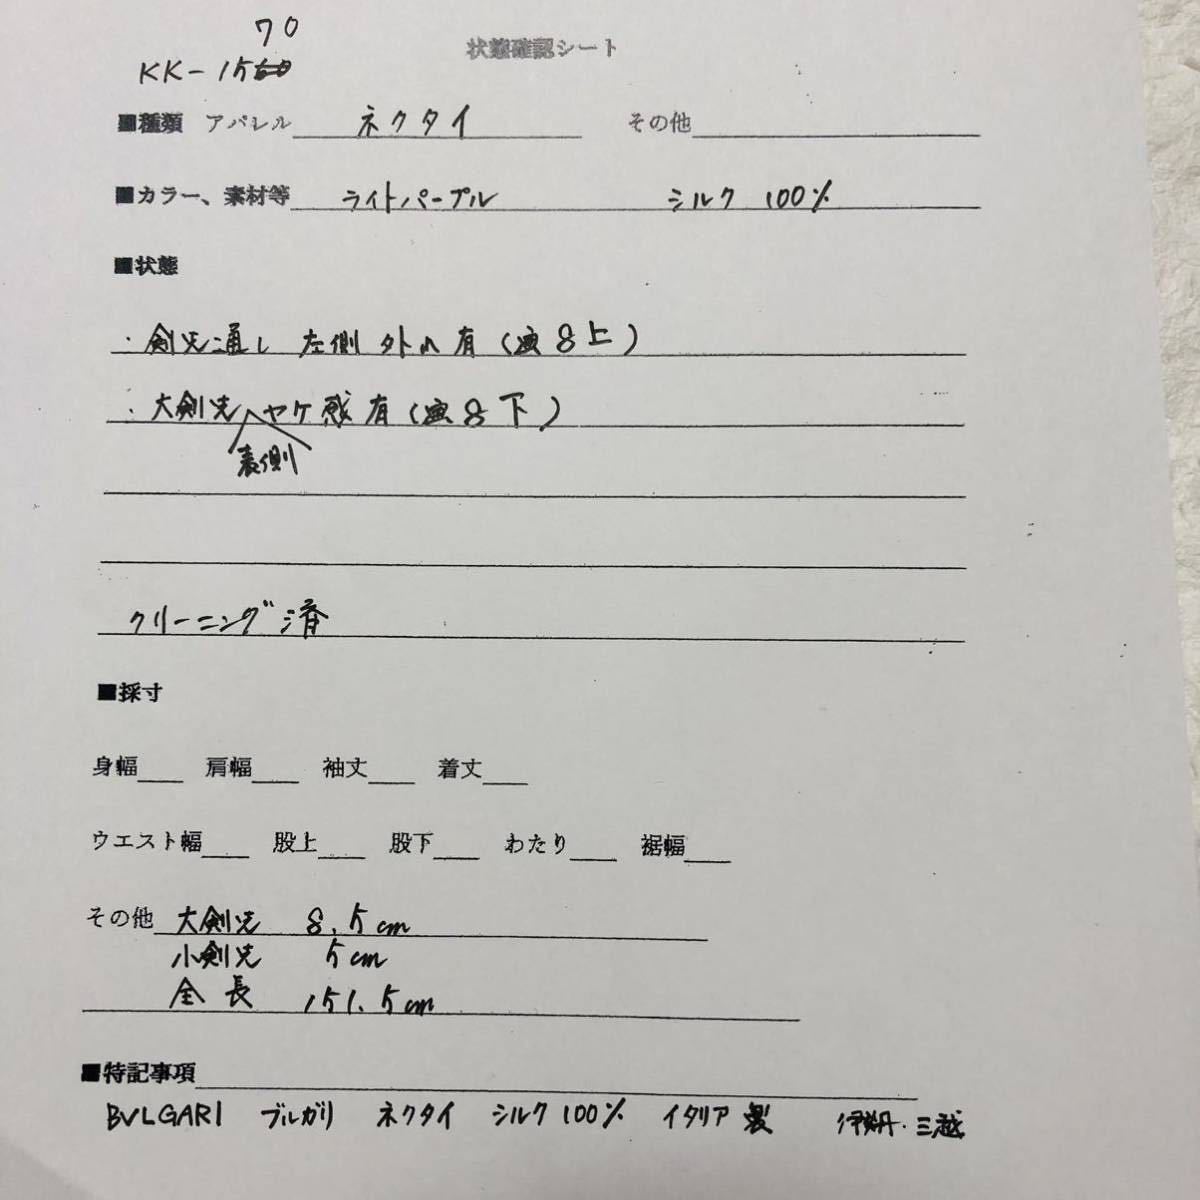 70
状態確認シート
KK-1560
■種類 アパレル ネクタイ その他
■カラー、素材等 ライトパープル シルク 100%
■状態
・剣先通し 左側 外れ有(画8上)
・大剣先 ヤケ感有(画8下)
裏側
クリーニング済
■採寸
身幅 肩幅 袖丈 着丈
ウエスト幅 股上 股下 わたり 裾幅
その他 大剣先 8.5cm
小剣先 5cm
全長 151.5cm
■特記事項
BVLGARI ブルガリ ネクタイ シルク100% イタリア製 伊勢丹・三越